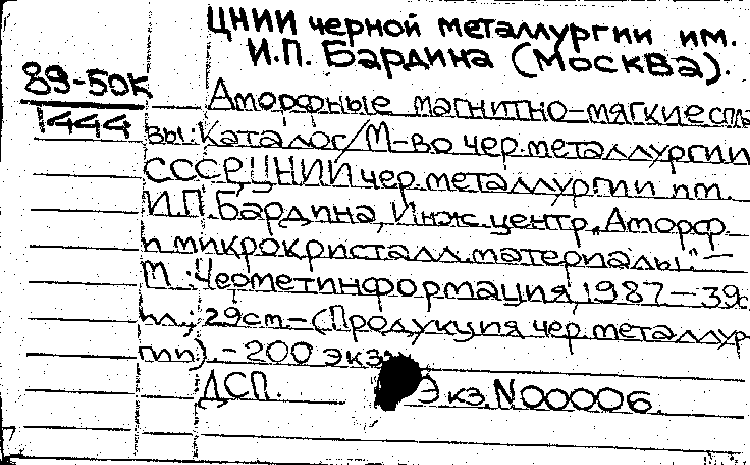 ЦНИИ черной металлургии им.
И.П. Бардина (Москва).
89-50К
1444
Аморфные магнитно-мягкие спла
вы: Каталог/М-во чер. металлургии
СССР, ЦНИИ чер. металлургии им.
И.П. Бардина, Инж. центр „Аморф.
и микрокристалл. материалы". —
М.: Черметинформация, 1987 — 39с.
ил.; 29см. — (Продукция чер. металлур
гии). — 200 экз.
ДСП. Экз. N00006.